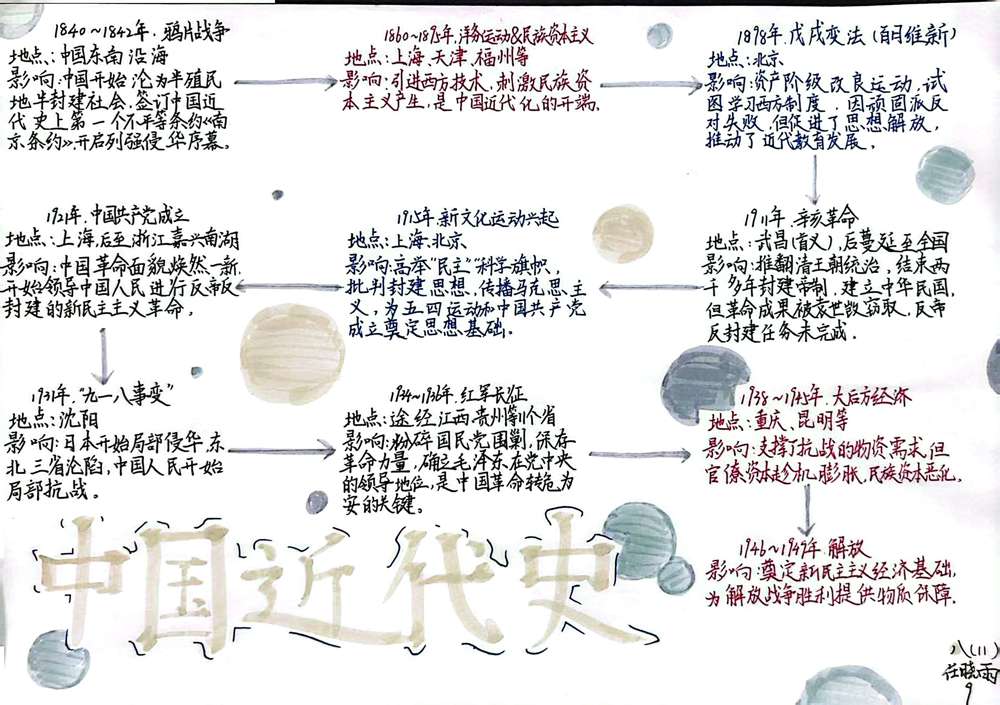 1840～1842年.鸦片战争
地点:中国东南沿海
影响:中国开始沦为半殖民
地半封建社会.签订中国近
代史上第一个不平等条约《南
京条约》.开启列强侵华序幕。
1860～1895年.洋务运动&民族资本主义
地点:上海、天津、福州等
影响:引进西方技术,刺激民族资
本主义产生,是中国近代化的开端.
1898年.戊戌变法(百日维新)
地点:北京
影响:资产阶级改良运动,试
图学习西方制度.因顽固派反
对失败,但促进了思想解放,
推动了近代教育发展。
1911年.辛亥革命
地点:武昌(首义),后蔓延至全国
影响:推翻清王朝统治,结束两
千多年封建帝制,建立中华民国,
但革命成果被袁世凯窃取,反帝
反封建任务未完成.
1915年.新文化运动兴起
地点:上海.北京
影响:高举“民主”科学旗帜,
批判封建思想,传播马克思主
义,为五四运动和中国共产党
成立奠定思想基础.
1921年.中国共产党成立
地点:上海,后至浙江嘉兴南湖
影响:中国革命面貌焕然一新.
开始领导中国人民进行反帝反
封建的新民主主义革命。
1931年.“九一八事变”
地点:沈阳
影响:日本开始局部侵华,东
北三省沦陷,中国人民开始
局部抗战。
1934～1936年.红军长征
地点:途经江西.贵州等11个省
影响:粉碎国民党围剿,保存
革命力量,确立毛泽东在党中央
的领导地位,是中国革命转危为
安的关键。
1938～1945年.大后方经济
地点:重庆、昆明等
影响:支撑了抗战的物资需求,但
官僚资本趁机膨胀,民族资本恶化.
1946～1949年.解放
影响:奠定新民主主义经济基础,
为解放战争胜利提供物质保障.
中国近代史
八(11)
任晓雨
9